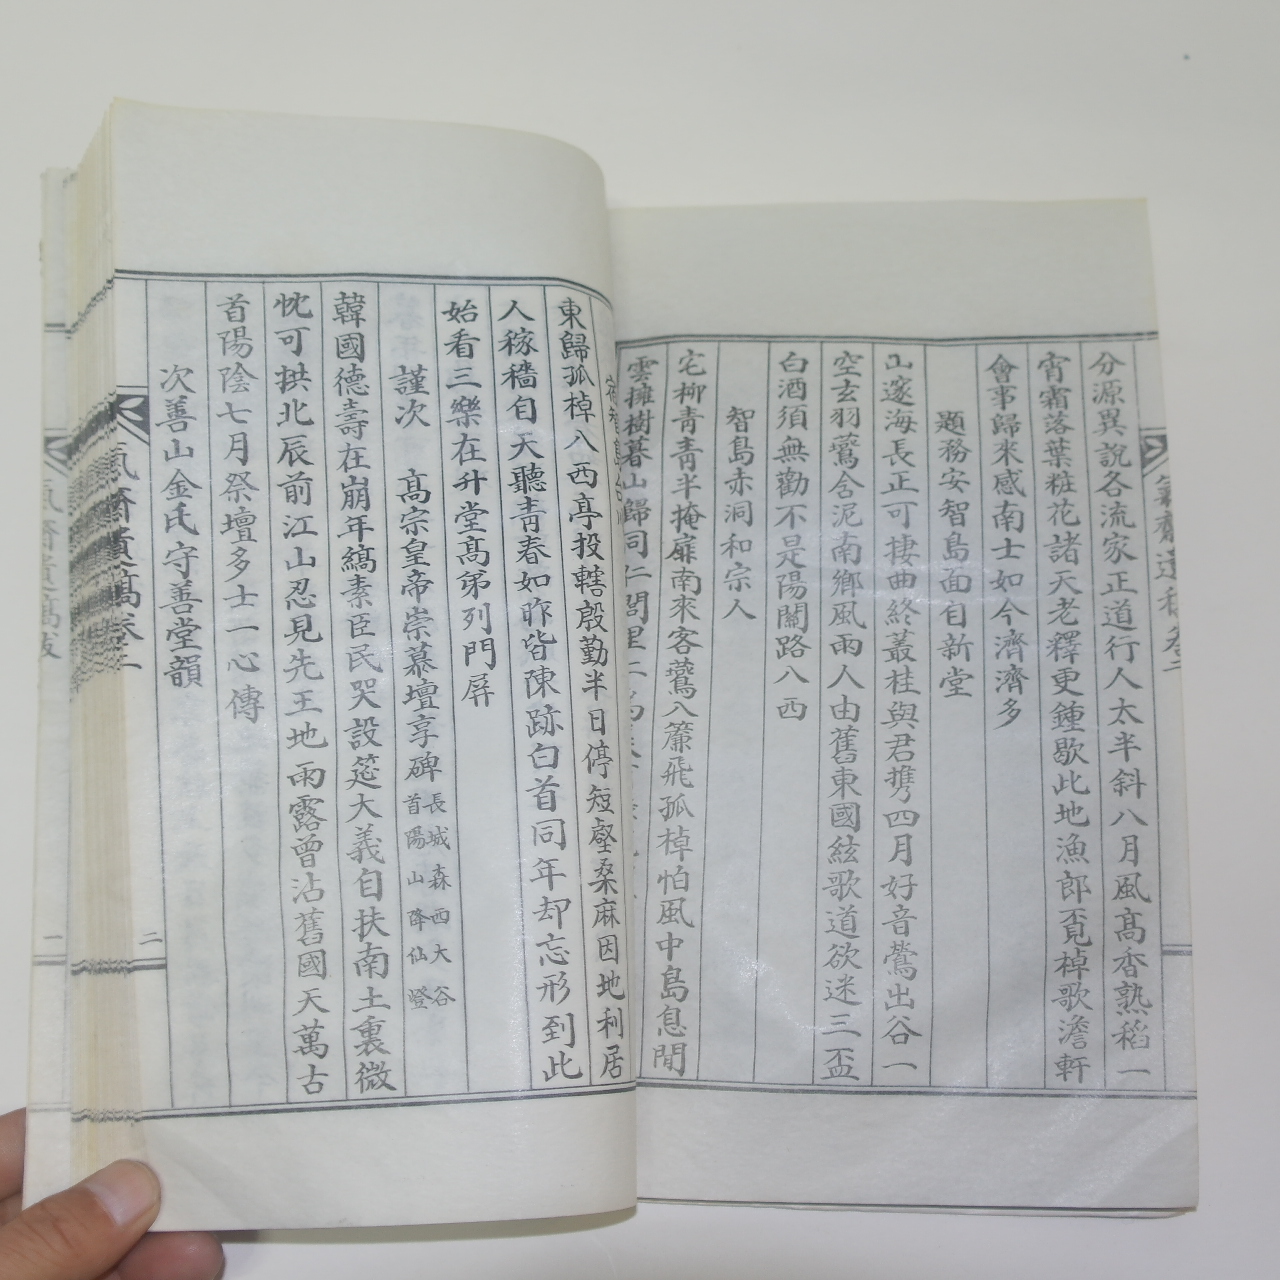 分源異說各流家正道行人太半斜八月風高香熟稻一
宵霜落葉粧花諸天老釋更鍾歇此地漁郎覓棹歌澹軒
會事歸來感南士如今濟濟多
題務安智島面自新堂
山邃海長正可棲曲終叢桂與君携四月好音鶯出谷一
空玄羽鷰含泥南鄉風雨人由舊東國絃歌道欲迷三盃
白酒須無勸不是陽關路八西
智島赤洞和宗人
宅柳靑靑半掩扉南來客鷰入簾飛孤棹怕風中島息閒
雲擁樹暮山歸同仁閭里仁爲
東歸孤棹八西亭投轄殷勤半日停短壑桑麻因地利居
人稼穡自天聽靑春如昨皆陳跡白首同年却忘形到此
始看三樂在升堂高弟列門屛
謹次 高宗皇帝崇慕壇享碑 長城森西大谷首陽山降仙嶝
韓國德壽在崩年縞素臣民哭設筵大義自扶南土裏微
忱可拱北辰前江山忍見先王地雨露曾沾舊國天萬古
首陽陰七月祭壇多士一心傳
次善山金氏守善堂韻
二